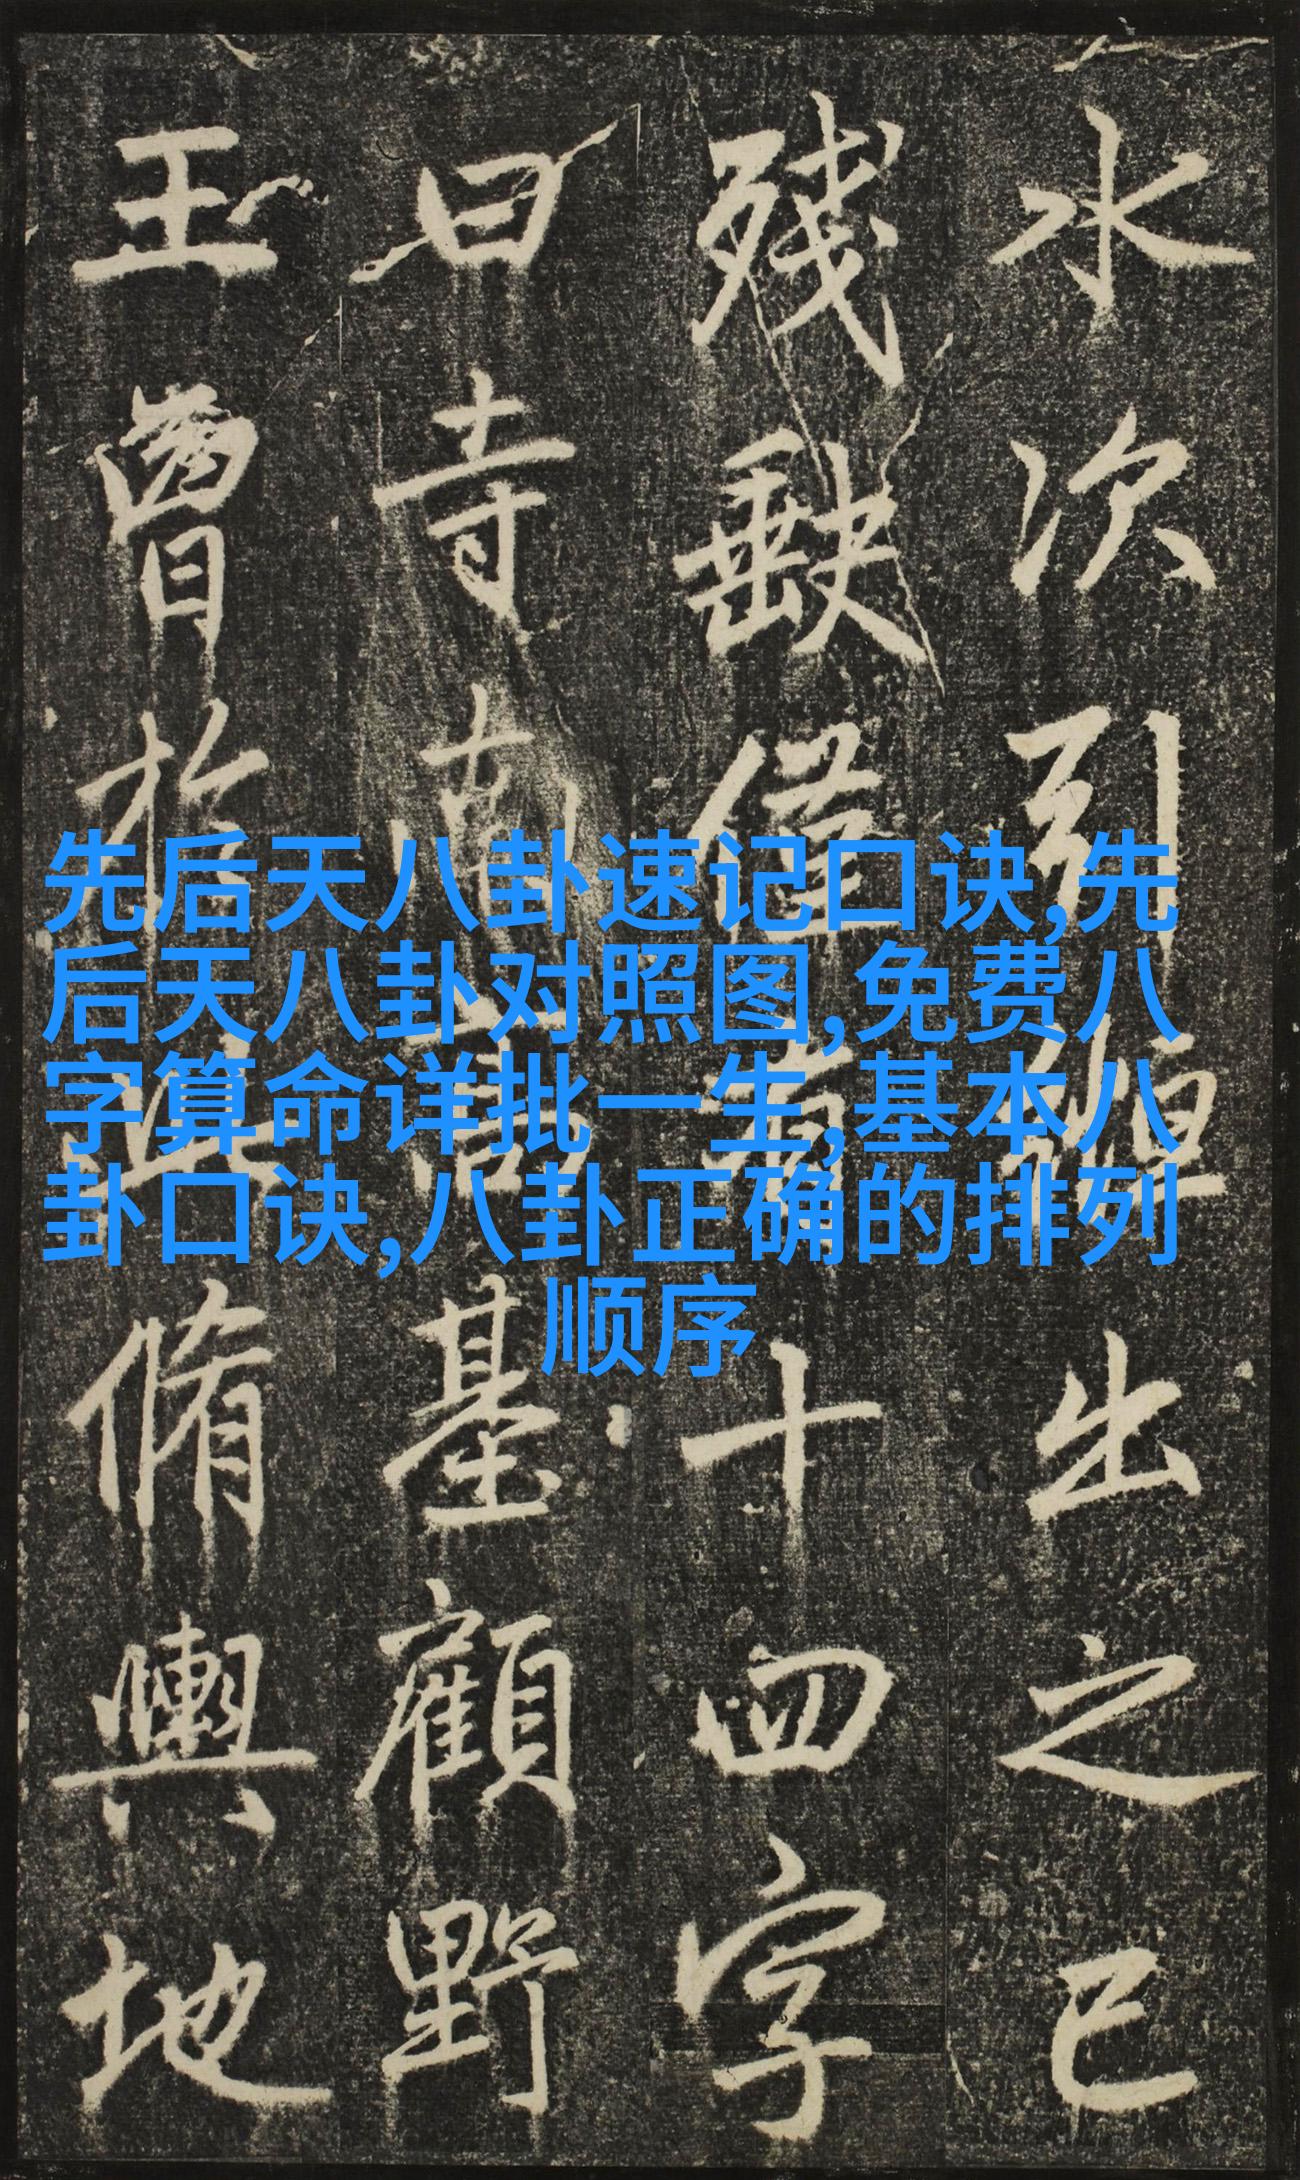 水次引出之已
殘缺僅十四字
曰寺南基顧野
王曾於脩輿地
先后天八卦速记口诀,先
后天八卦对照图,免费八
字算命详批一生,基本八
卦口诀,八卦正确的排列
顺序